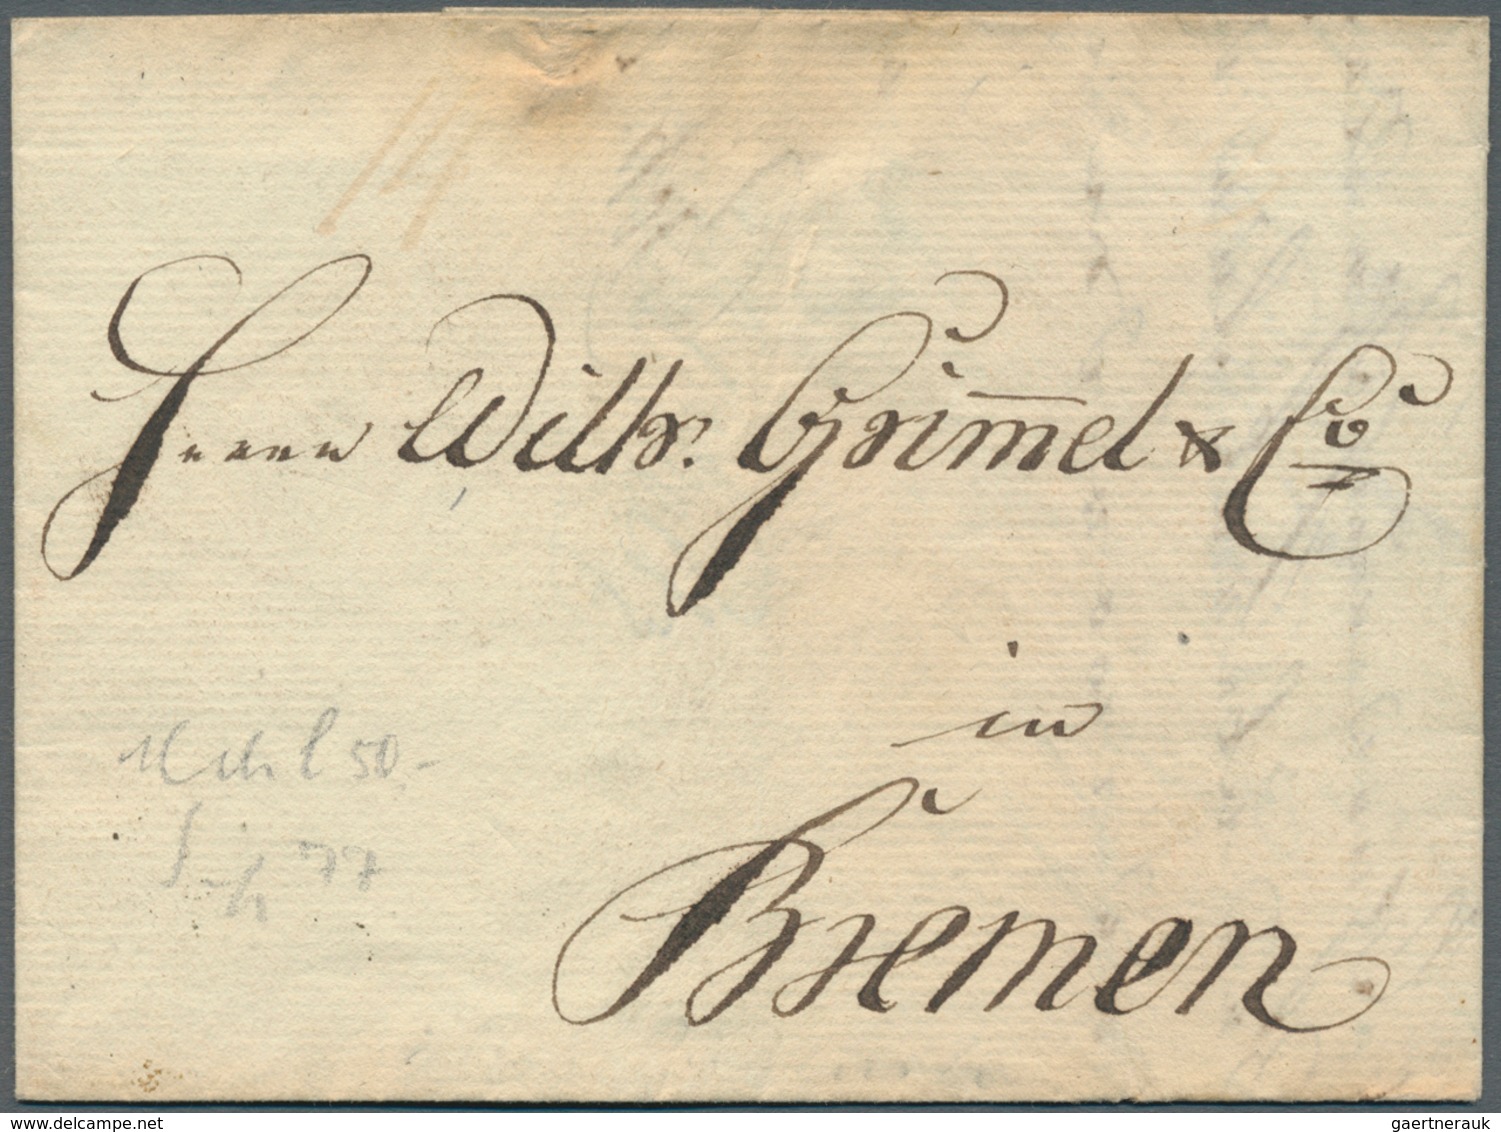 Herrn Wilh. Grimmel & Co
in
Bremen
50.-
77
www.delcampe.net
gaertnerauk